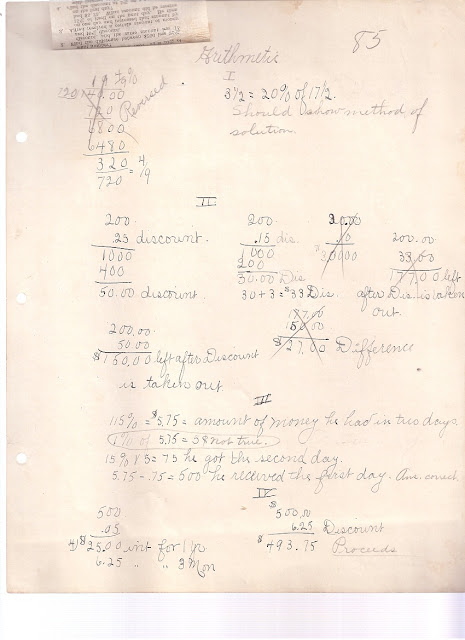 85
Arithmetic
I
11 1/9%
720
80.00
720
6800
6480
320 = 4
720 9
Reversed
3 1/2 = 20% of 17 1/2.
Should show method of
solution.
II
200
.25 discount.
1000
400
50.00 discount.
200.00
50.00
$150.00 left after Discount
is taken out
200
.15 dis.
1000
200
30.00 Dis
30 + 3 = $33 Dis.
30.00
.10
$3.0000
200.00
33.00
177.00 left
after Dis. is taken
out.
177.00
150.00
$27.00 Difference
III
115% = $5.75 = amount of money he had in two days.
1% of 5.75 = 5 8 not true.
15% x 5 = 75 he got the second day.
5.75 - .75 = 500 he received the first day. Ans. correct.
IV
500
.05
4)$25.00 int for 1 yr
6.25 " " 3 Mon
$500.00
6.25 Discount
$493.75 Proceeds